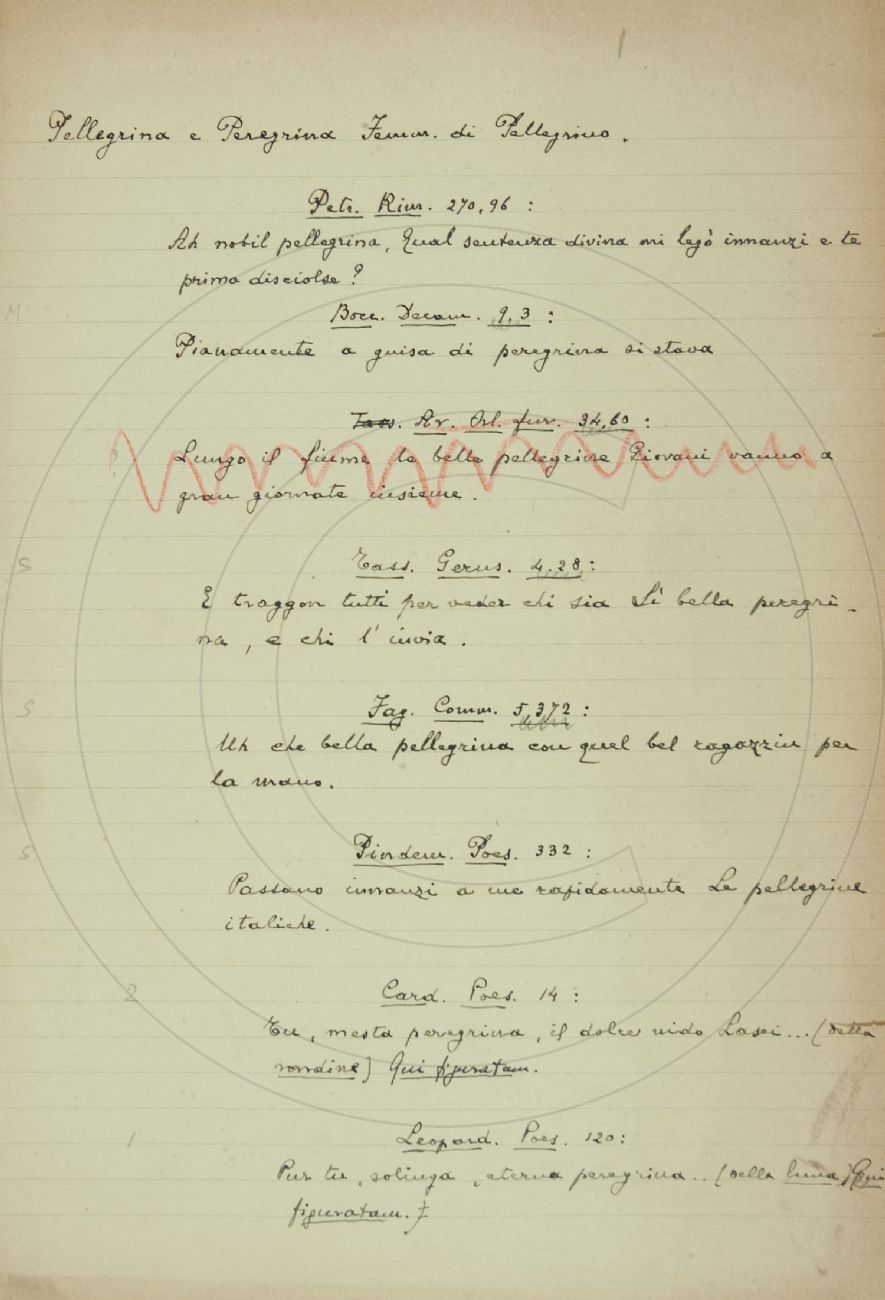 1
Pellegrina e Peregrina Femm. di Pellegrino.
Petr. Rim. 270, 96 :
Ah nobil pellegrina, Qual sentenza divina mi legò innanzi e te
prima disciolse ?
M
Bocc. Decam. 9, 3 :
Pianamente a guisa di peregrina si stava
Tass. Ar. Orl. fur. 34, 60 :
? Lungo il fiume le belle pellegrine Giovani vanno a
gran giornate insieme .
S
Tass. Gerus. 4. 28 :
E traggon tutti per veder chi sia Sì bella peregri-
na , e chi l' invia .
Fag. Comm. 5, 372 :
S
Uh che bella pellegrina con quel bel ragazzin per
la mano.
S
Pindem. Poes. 332 :
Passano innanzi a me rapidamente Le pellegrine
italiche.
2
Card. Poes. 14 :
Tu, mesta peregrina, il dolce nido Lasci... (della
rondine) Qui figuratam.
1
Leopard. Poes. 120 :
Pur tu, solinga, eterna peregrina.. (della luna) Qui
figuratam. ‡